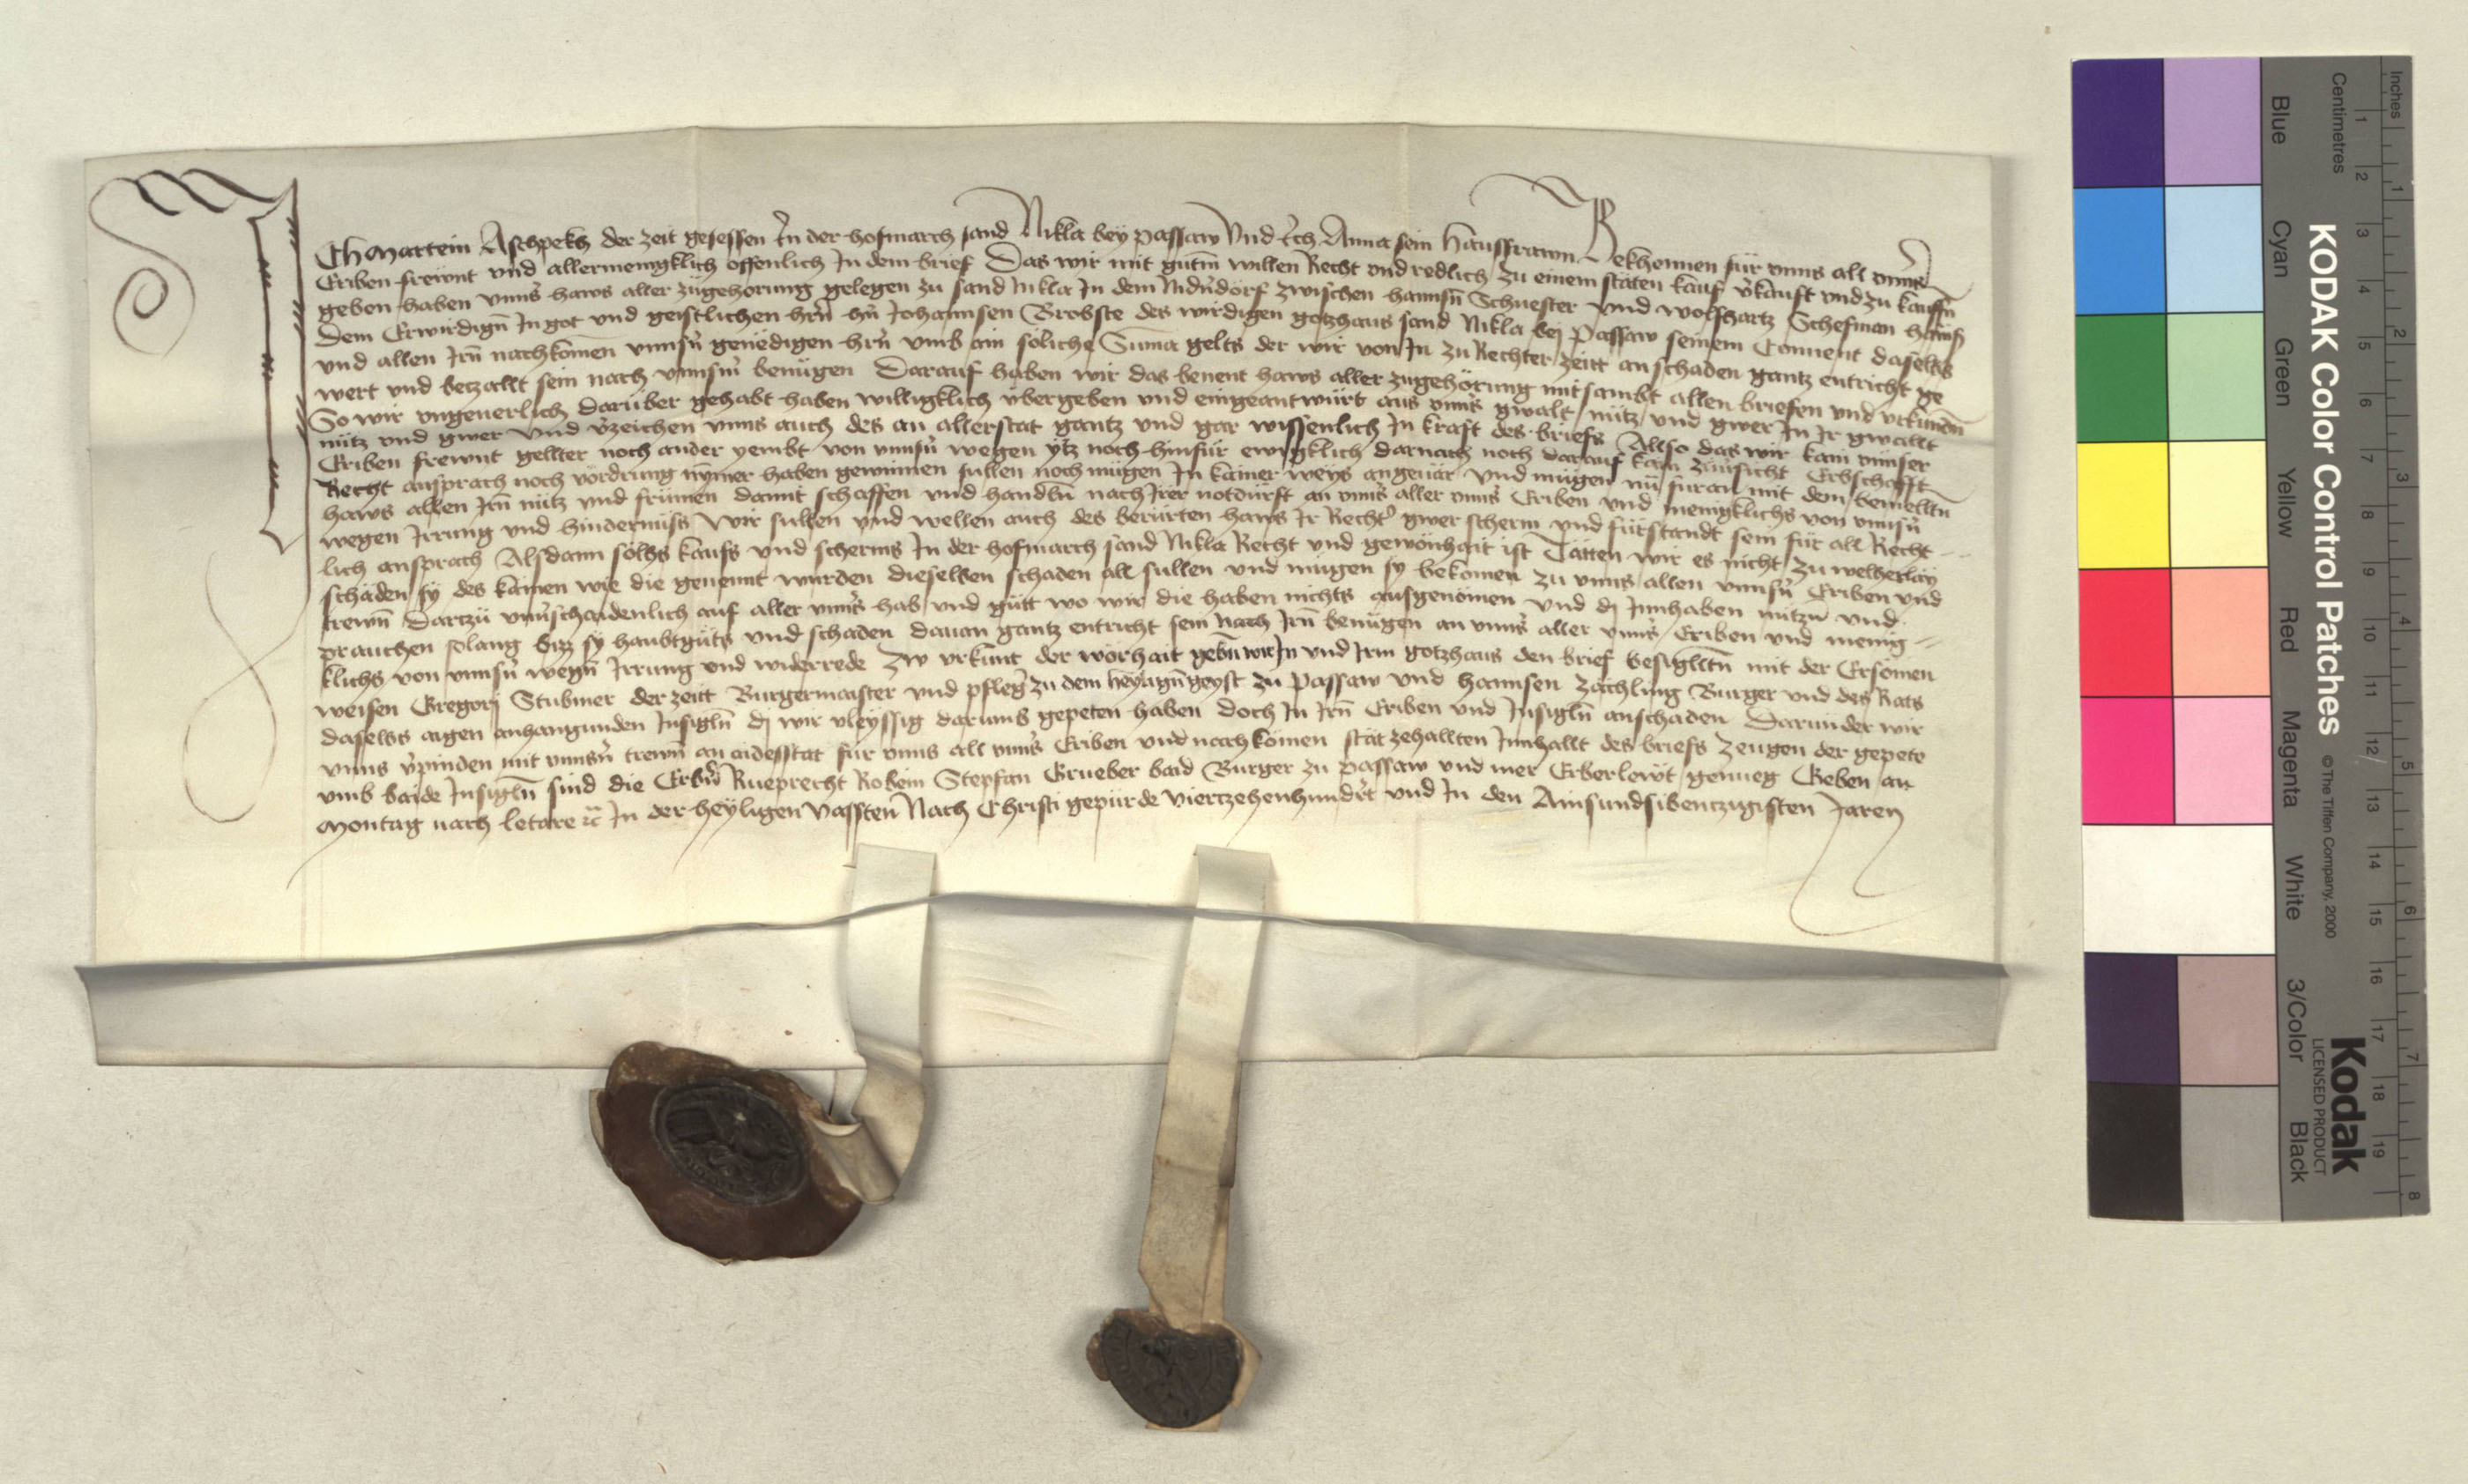 Ich Martein Aschpekh der zeit gesessen In der hofmarch sand Nikla bey passaw Vnd Ich Anna sein haussrawn Bekhennen für vnns all vnnser
Eriben frewnt vnd allermenigklich offenlich In dem brief Das wir mit gutm willen Recht vnd redlich zu einem stäten kauf v̉kauft vnd zu kauffn̄
geben haben vnns̉ haws aller zugehorung gelegen zu sand Nikla In dem Nidn̉dorf zwischen hannsn̄ Schuester vnd wolfhartz Schefman hawss
Dem Erwirdign̄ In got vnd geistlichen hrn̄ hn̄ Johannsen Brobste des wirdigen gotzhaus sand Nikla bej Passaw seinem Conuent daselbs
vnd allen Irn̄ nachkomen vnnsn̉ genedigen hrn̄ vmb ain söliche Suma gelts der wir von In zu Rechter zeitt an schaden gantz entricht ge
wert vnd betzallt sein nach vnnsm̉ benügen Darauf haben wir das benent haws aller zugehörung mitsambt allen briefen vnd vrkundn̄
So wir vngeuerlich darüber gehabt haben willigklich übergeben vnd eingeantwürt aus vnns̉ gwalt nütz vnd gwer In Ir gwallt
nütz vnd gwer Vnd v̉zeichen vnns auch des an allerstat gantz vnd gar wissenlich In kraft des briefs Allso das wir kain vnnser
Eriben frewnt gellter noch ander yembt von vnnsn̉ wegen ytz noch hinfür ewigklich darnach noch darauf kain züuersicht Erbschafft
Recht ansprach noch vördrung nymer haben gewinnen sullen noch mügen In kainer weys angeuär Vnd mügen nü füran mit dem bemelltn̄
haws allen Irn̄ nütz vnd frümen damit schaffen vnd handln̄ nach Irer notdürft an vnns̉ aller vnns̉ Eriben vnd menigklichs von vnnsn̉
wegen Irrung vnd hindernüss Wir sullen vnd wellen auch des berürten haws Ir Recht̉ gwer scherm vnd fürstandt sein für all Recht
lich ansprach Alsdann sölhs kaufs vnd scherms In der hofmarch sand Nikla Recht vnd gewonhait ist Tätten wir es nicht zu welherläy
schäden sy des kämen wie die genennt wurden dieselben schaden all sullen vnd mügen sy bekomen zu vnns allen vnnsn̉ Eriben vnd
trewn̄ Dartzü vnủschaidenlich auf aller vnns̉ hab vnd gütt wo wir die haben nichts ausgenömen vnd dj Innhaben nützn̄ vnd
prauchen solang bizz sy haubtgüts vnd schaden dauan gantz entricht sein nach Irn̄ benügen an vnns̉ aller vnns̉ Eriben vnd menig
klichs von vnnsn̉ wegn̄ Irrung vnd widerrede Zw vrkunt der worhait gebn̄ wir In vnd Irm gotzhaus den brief besiglltn̄ mit der Ersomen
weisen Gregorj Stubmer der zeitt Burgermaister vnd pfleg̉ zu dem heylign̄ geyst zu Passaw vnd hannsen Zächling Burger vnd des Rats
daselbs aigen anhangunden Insigln̄ dj wir vleyssig darumb gepeten haben doch In Irn̄ Eriben vnd Insigln̄ anschaden Darunder wir
vnns v̉pinden mit vnnsn̉ trewn̄ an aidesstat für vnns all vnns̉ Eriben vnd nachkomen stät zehallten Innhallt des briefs Zeugen der gepete
vmb baide Insigln̄ sind die Erbn̉ Rueprecht Robein Stepfan Grueber baid Burger zu passaw vnd mer Erberlewt genueg Geben an
Montag nach letare ꝛc̄ In der heyligen vassten Nach Christi gepürde Viertzehenhundert̉ vnd In den Ainsundsibentzigisten Jaren
Inches
Centimetres
KODAK Color Control Patches
© The Tiffen Company, 2000
Kodak
LICENSED PRODUCT
Blue
Cyan
Green
Yellow
Red
Magenta
White
3/Color
Black
1 2 3 4 5 6 7 8 9 10 11 12 13 14 15 16 17 18 19
1 2 3 4 5 6 7 8